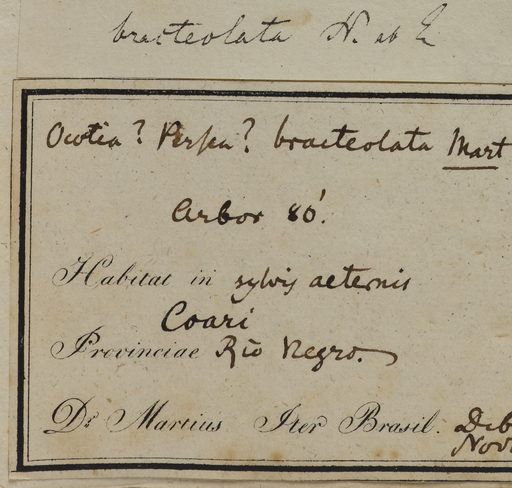 bracteolata N. ab E
Ocotia? Persea? bracteolata Mart
Arbor 80'.
Habitat in sylvis aeternis
Coari
Provinciae Rio Negro.
Dr. Martius Iter Brasil. Dcb
Nov